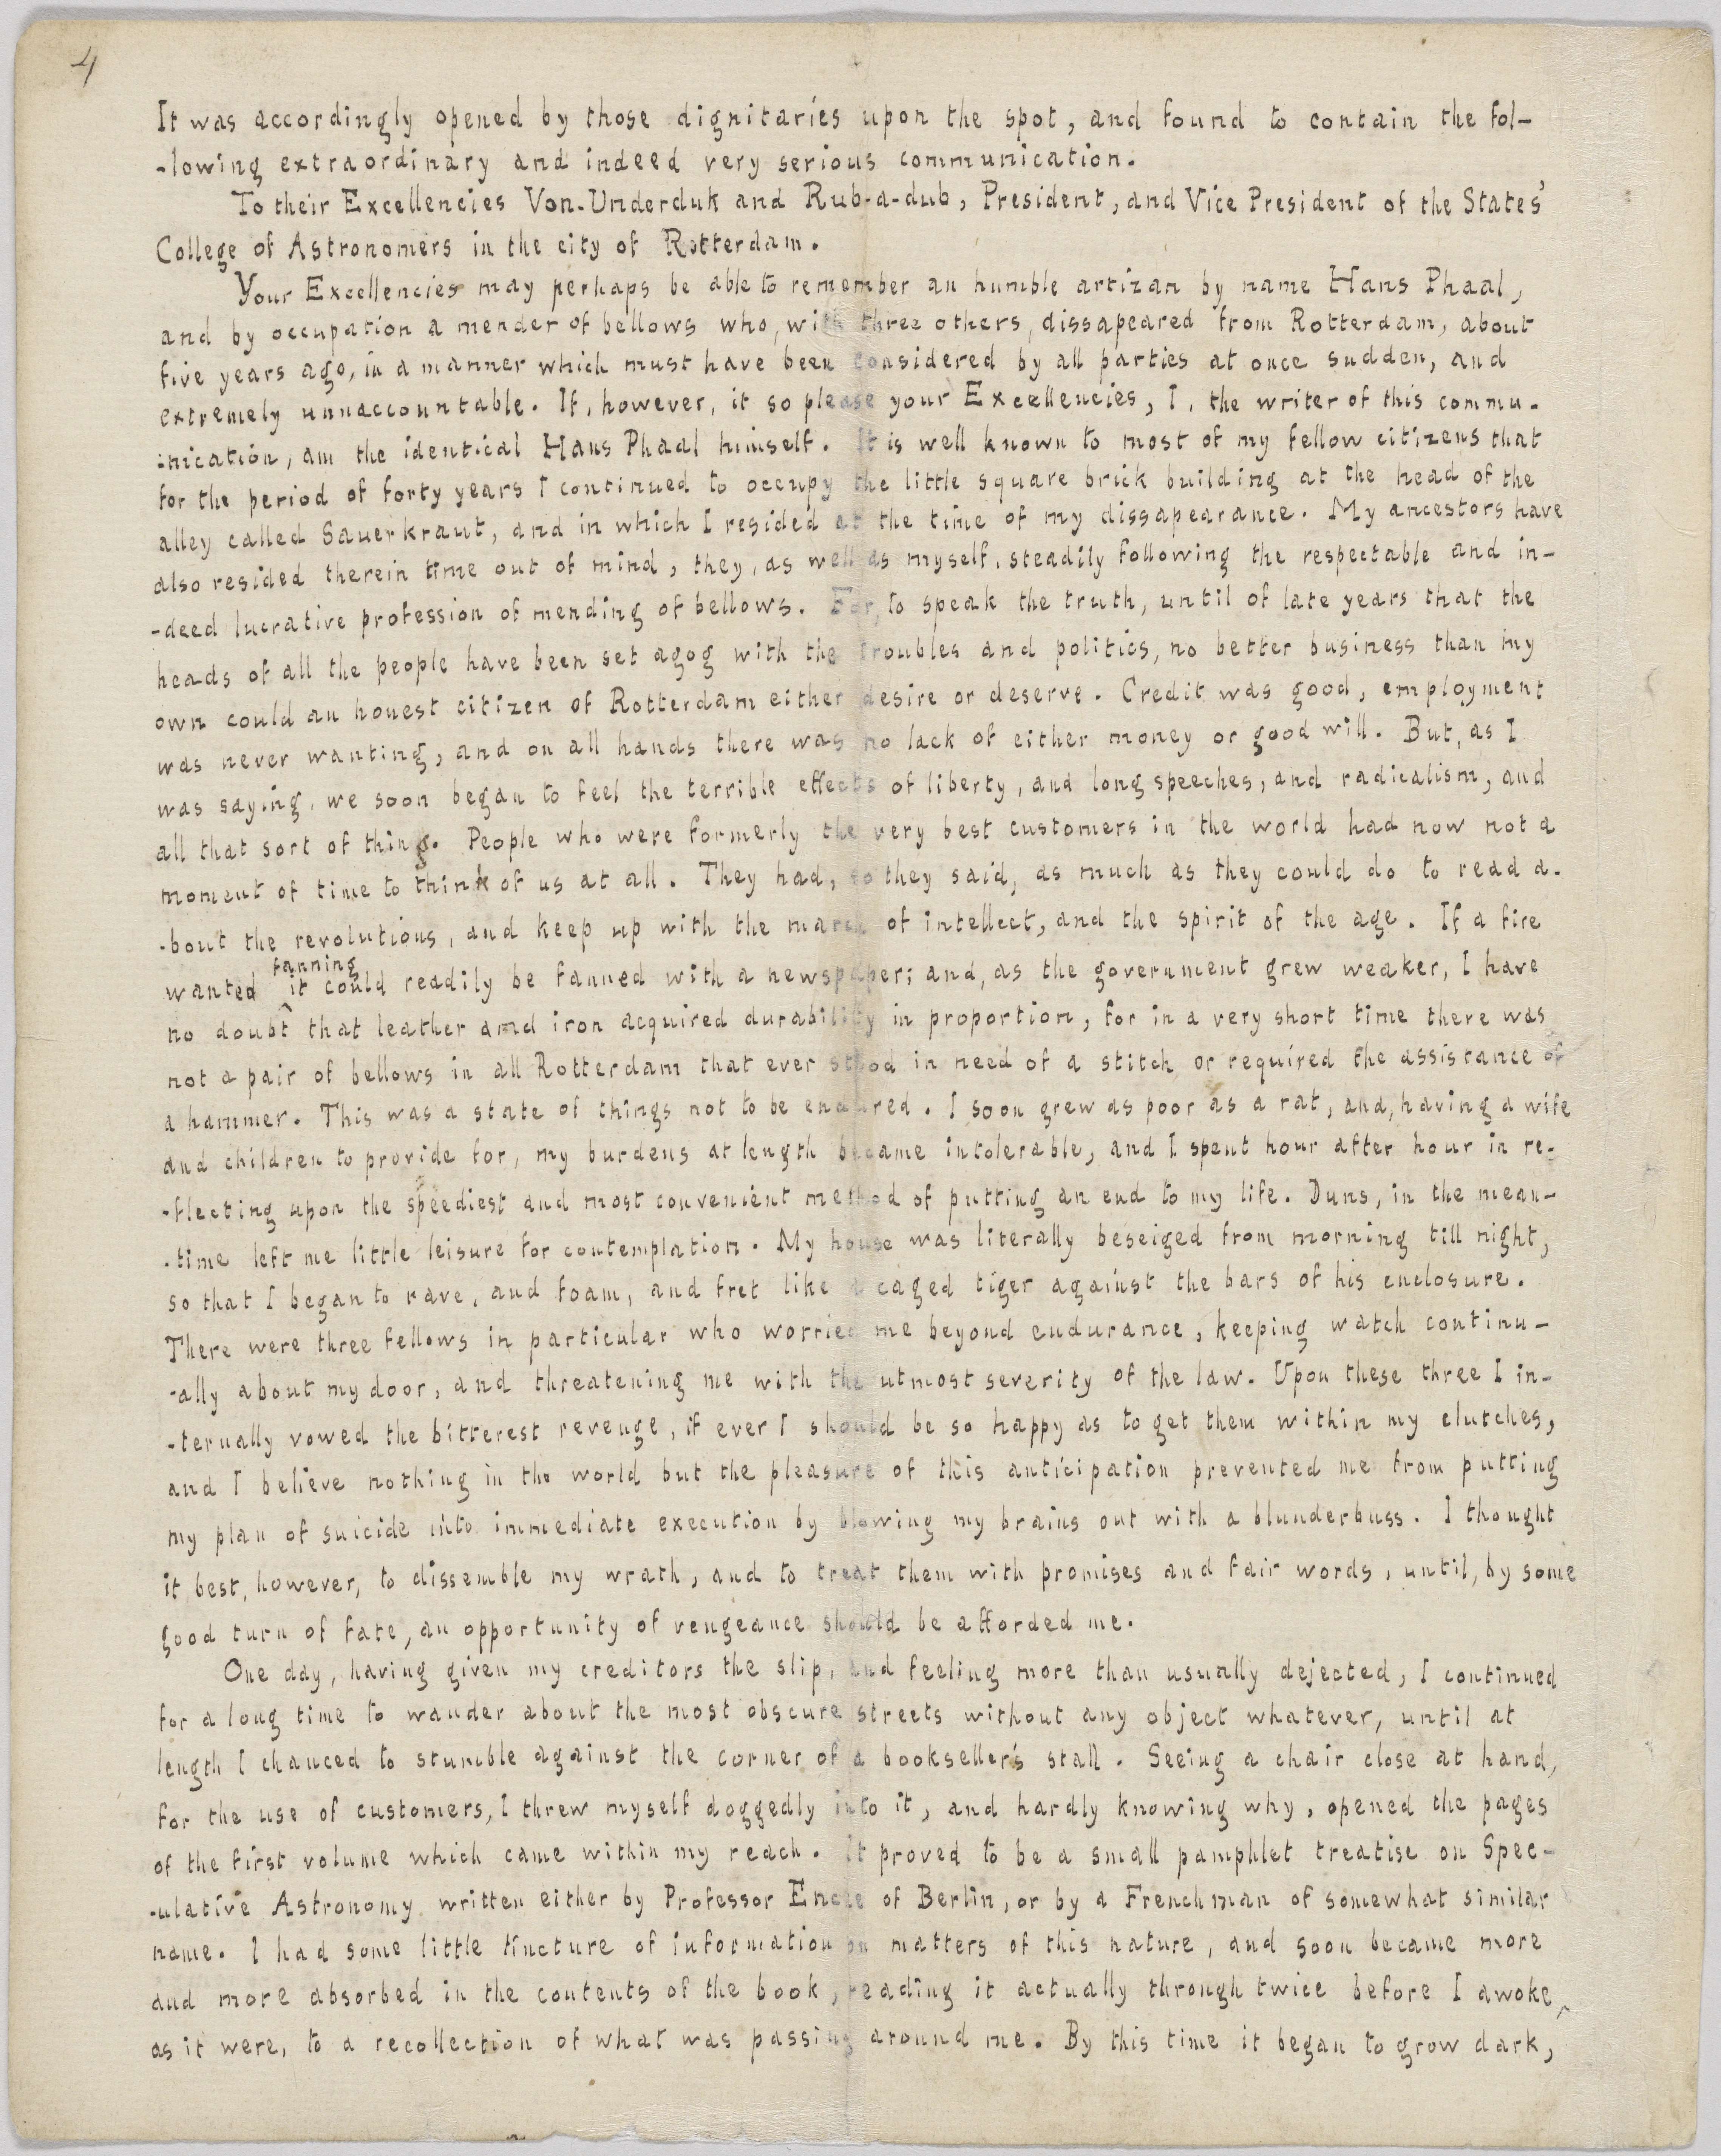 4
It was accordingly opened by those dignitaries upon the spot, and found to contain the fol-
-lowing extraordinary and indeed very serious communication.
To their Excellencies Von-Underduk and Rub-a-dub, President, and Vice President of the States'
College of Astronomers in the city of Rotterdam.
Your Excellencies may perhaps be able to remember an humble artizan by name Hans Phaal,
and by occupation a mender of bellows who, with three others, dissapeared from Rotterdam, about
five years ago, in a manner which must have been considered by all parties at once sudden, and
extremely unnaccountable. If, however, it so please your Excellencies, I, the writer of this commu-
-nication, am the identical Hans Phaal himself. It is well known to most of my fellow citizens that
for the period of forty years I continued to occupy the little square brick building at the head of the
alley called Sauerkraut, and in which I resided at the time of my dissapearance. My ancestors have
also resided therein time out of mind, they, as well as myself, steadily following the respectable and in-
-deed lucrative profession of mending of bellows. For, to speak the truth, until of late years that the
heads of all the people have been set agog with the troubles and politics, no better business than my
own could an honest citizen of Rotterdam either desire or deserve. Credit was good, employment
was never wanting, and on all hands there was no lack of either money or good will. But, as I
was saying, we soon began to feel the terrible effects of liberty, and long speeches, and radicalism, and
all that sort of thing. People who were formerly the very best customers in the world had now not a
moment of time to think of us at all. They had, so they said, as much as they could do to read a-
-bout the revolutions, and keep up with the march of intellect, and the spirit of the age. If a fire
fanning
wanted it could readily be fanned with a newspaper; and, as the government grew weaker, I have
no doubt that leather and iron acquired durability in proportion, for in a very short time there was
not a pair of bellows in all Rotterdam that ever stood in need of a stitch or required the assistance of
a hammer. This was a state of things not to be endured. I soon grew as poor as a rat, and, having a wife
and children to provide for, my burdens at length became intolerable, and I spent hour after hour in re-
-flecting upon the speediest and most convenient method of putting an end to my life. Duns, in the mean-
-time left me little leisure for contemplation. My house was literally beseiged from morning till night,
so that I began to rave, and foam, and fret like a caged tiger against the bars of his enclosure.
There were three fellows in particular who worried me beyond endurance, keeping watch continu-
-ally about my door, and threatening me with the utmost severity of the law. Upon these three I in-
-ternally vowed the bitterest revenge, if ever I should be so happy as to get them within my clutches,
and I believe nothing in the world but the pleasure of this anticipation prevented me from putting
my plan of suicide into immediate execution by blowing my brains out with a blunderbuss. I thought
it best, however, to dissemble my wrath, and to treat them with promises and fair words, until, by some
good turn of fate, an opportunity of vengeance should be afforded me.
One day, having given my creditors the slip, and feeling more than usually dejected, I continued
for a long time to wander about the most obscure streets without any object whatever, until at
length I chanced to stumble against the corner of a bookseller's stall. Seeing a chair close at hand,
for the use of customers, I threw myself doggedly into it, and hardly knowing why, opened the pages
of the first volume which came within my reach. It proved to be a small pamphlet treatise on Spec-
-ulative Astronomy written either by Professor Encke of Berlin, or by a Frenchman of somewhat similar
name. I had some little tincture of information on matters of this nature, and soon became more
and more absorbed in the contents of the book, reading it actually through twice before I awoke,
as it were, to a recollection of what was passing around me. By this time it began to grow dark,